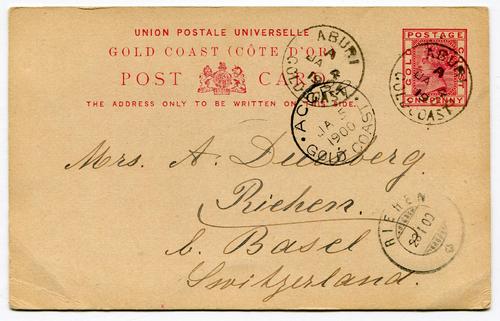 UNION POSTALE UNIVERSELLE
GOLD COAST (CÔTE D'OR)
POST CARD
THE ADDRESS ONLY TO BE WRITTEN ON THIS SIDE.
POSTAGE
GOLD
ONE PENNY
ABURI
A
JA
GOLD COAST
ABURI
A
JA
GOLD COAST
ACC
JA 5
1900
GOLD COAST
Mrs. A.
Riehen.
b. Basel
Switzerland.
RIEHEN